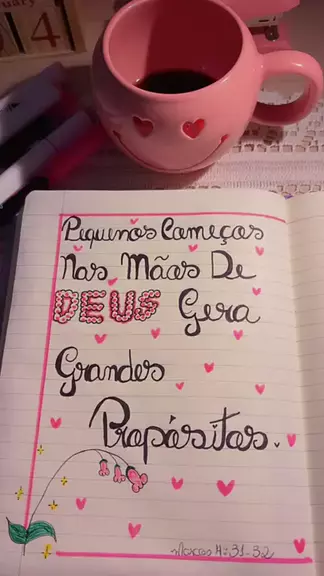 4
Pequenos Começos
Nas Mãos De
DEUS Gera
Grandes
Propósitos.
Marcos 4:31-32